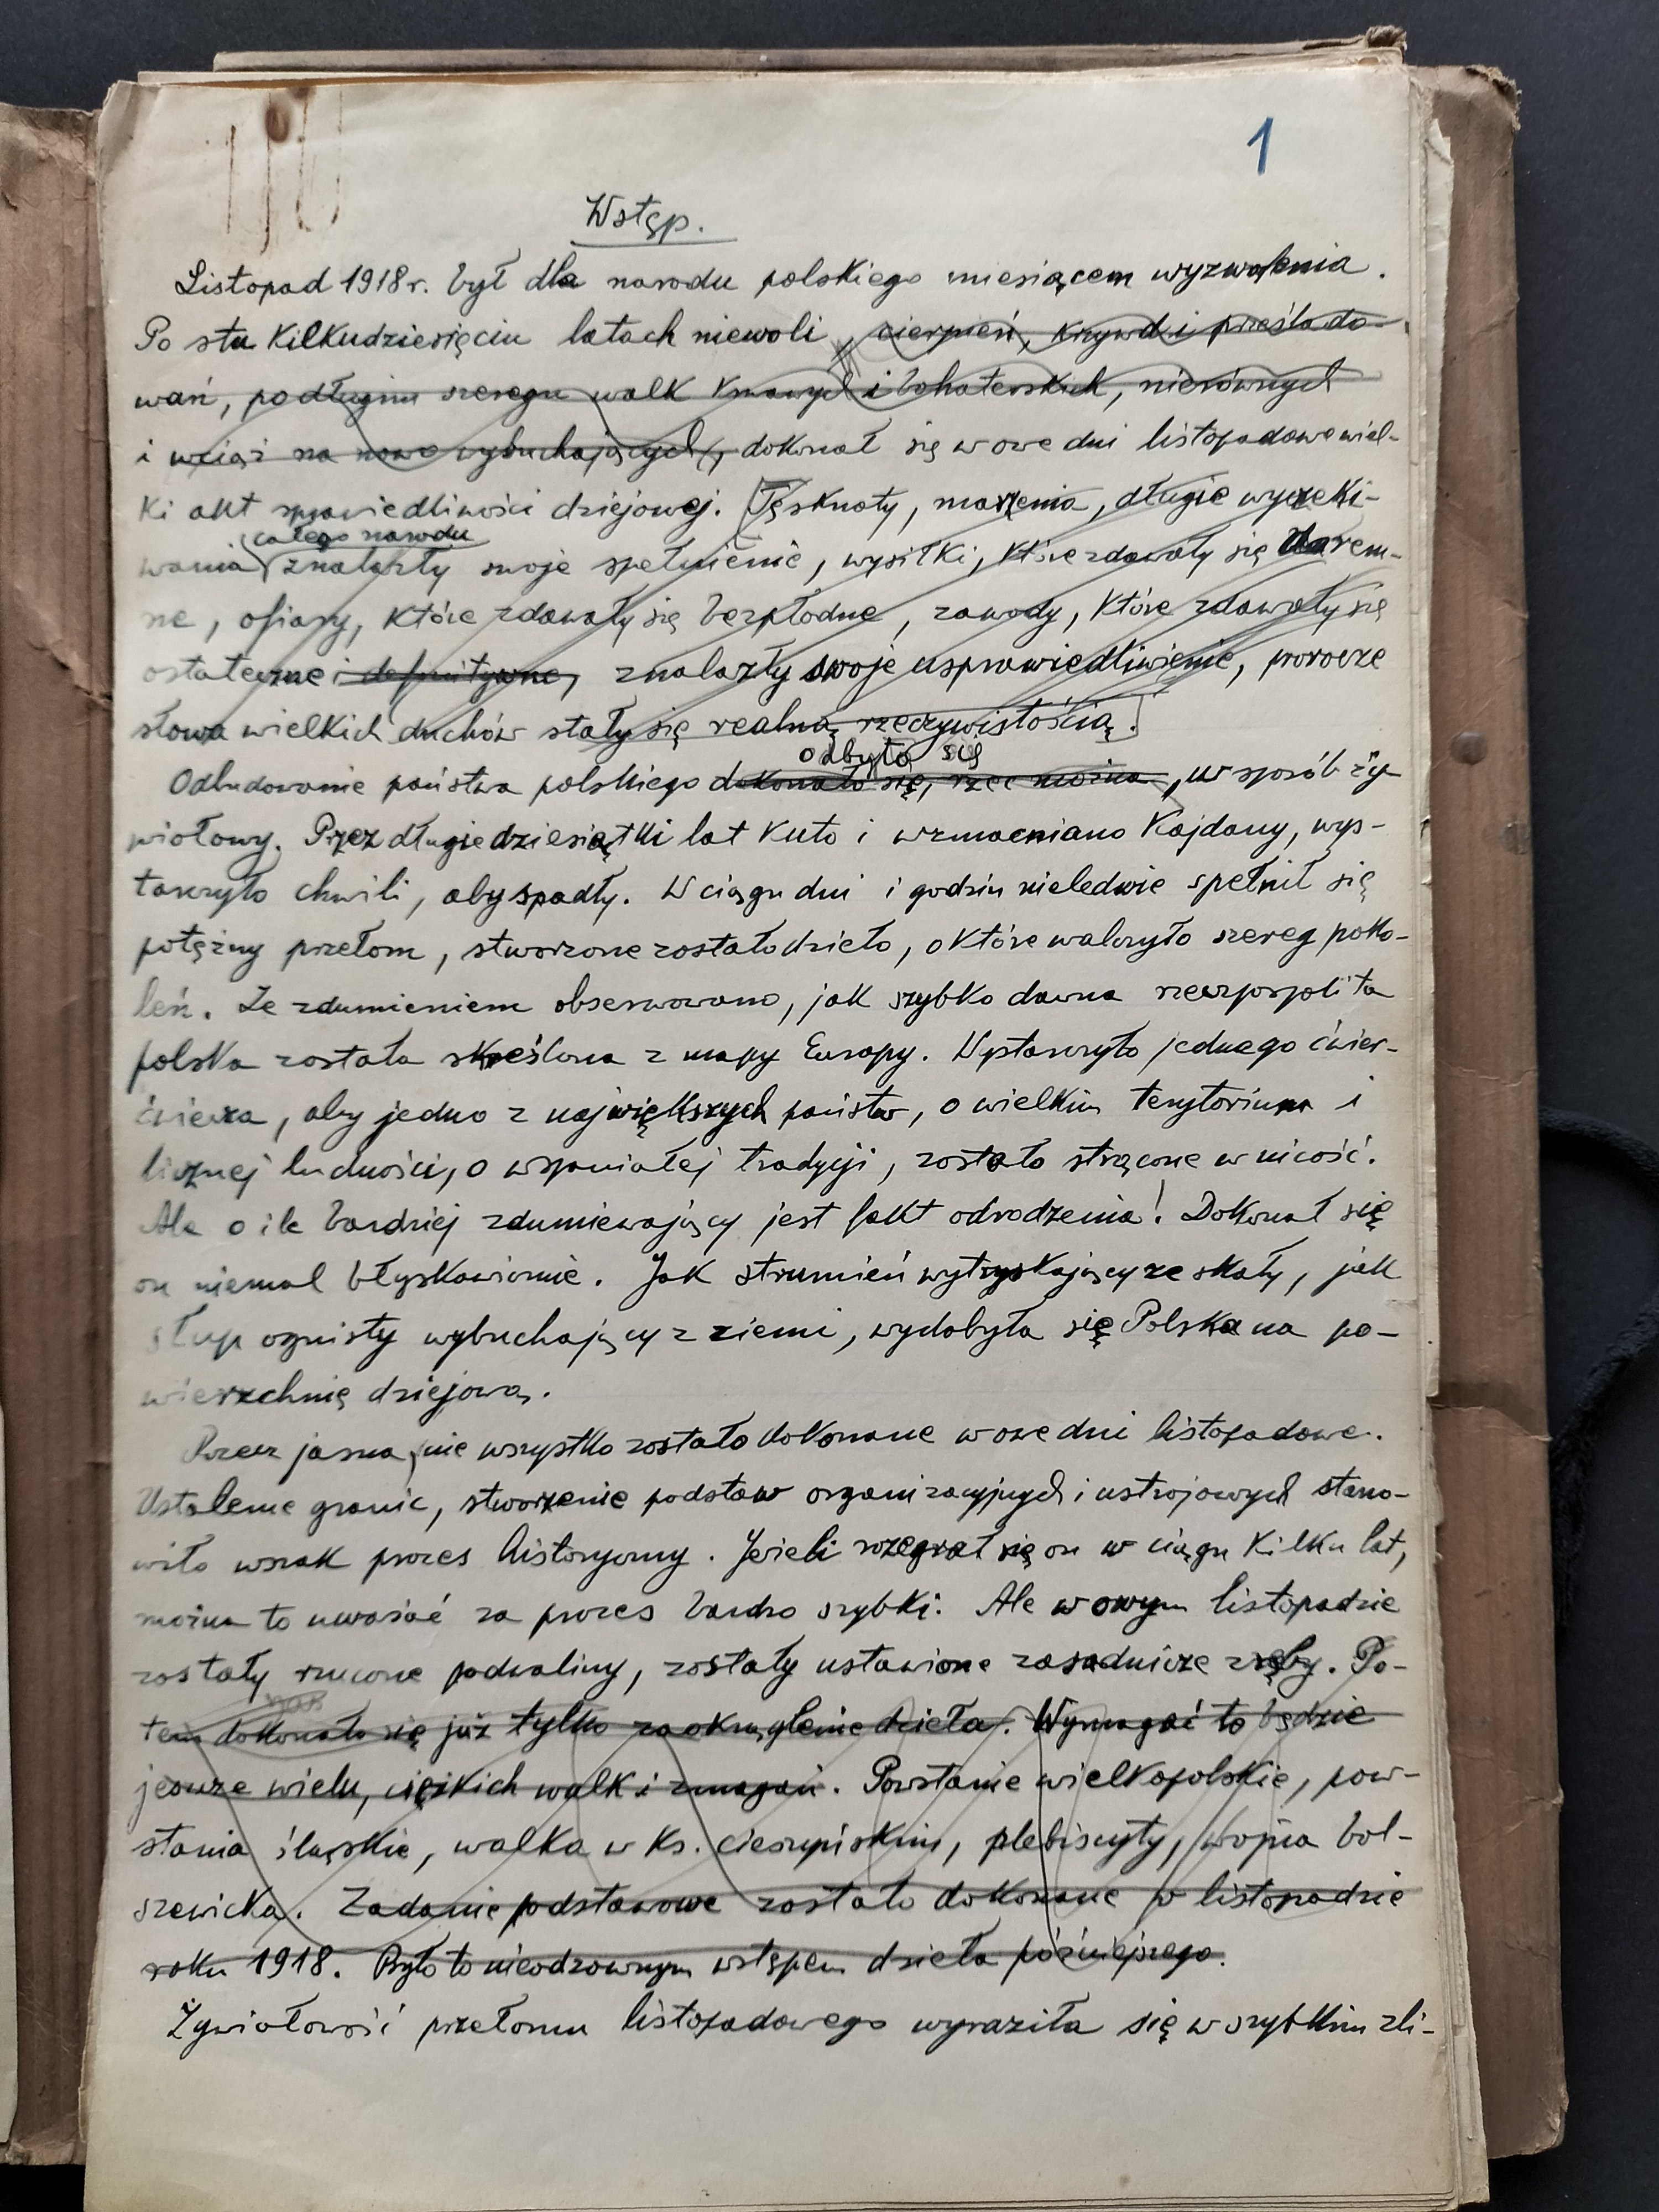 1
Wstęp.
Listopad 1918 r. był dla narodu polskiego miesiącem wyzwolenia.
Po stu kilkudziesięciu latach niewoli, cierpień, krzywd i prześlado-
wań, po długim szeregu walk krwawych i bohaterskich, nierównych
i wciąż na nowo wybuchających, dokonał się w owe dni listopadowe wiel-
ki akt sprawiedliwości dziejowej. [Tęsknoty, marzenia, długie wyczeki-
całego narodu
wania znalazły swoje spełnienie, wysiłki, które zdawały się darem-
ne, ofiary, które zdawały się bezpłodne, zawody, które zdawały się
ostateczne i definitywne, znalazły swoje usprawiedliwienie, prorocze
słowa wielkich duchów stały się realną rzeczywistością.]
odbyło się
Odbudowanie państwa polskiego dokonało się, rzec można, w sposób ży-
wiołowy. Przez długie dziesiątki lat kuto i wzmacniano kajdany, wys-
tarczyło chwili, aby spadły. W ciągu dni i godzin nieledwie spełnił się
potężny przełom, stworzone zostało dzieło, o które walczyło szereg poko-
leń. Ze zdumieniem obserwowano, jak szybko dawna rzeczpospolita
polska została skreślona z mapy Europy. Wystarczyło jednego ćwier-
ćwiecza, aby jedno z największych państw, o wielkim terytorium i
licznej ludności, o wspaniałej tradycji, zostało strącone w nicość.
Ale o ile bardziej zdumiewający jest fakt odrodzenia! Dokonał się
on niemal błyskawicznie. Jak strumień wytryskający ze skały, jak
słup ognisty wybuchający z ziemi, wydobyła się Polska na po-
wierzchnię dziejową.
Rzecz jasna, nie wszystko zostało dokonane w owe dni listopadowe.
Ustalenie granic, stworzenie podstaw organizacyjnych i ustrojowych stano-
wiło wszak proces historyczny. Jeżeli rozegrał się on w ciągu kilku lat,
można to uważać za proces bardzo szybki. Ale w owym listopadzie
zostały rzucone podwaliny, zostały ustawione zasadnicze zręby. Po-
tem dokonało się już tylko zaokrąglenie dzieła. Wymagać to będzie
jeszcze wielu, ciężkich walk i zmagań. Powstanie wielkopolskie, pow-
stania śląskie, walka w Ks. cieszyńskim, plebiscyty, wojna bol-
szewicka. Zadanie podstawowe zostało dokonane w listopadzie
roku 1918. Było to nieodzownym wstępem dzieła późniejszego.
Żywiołowość przełomu listopadowego wyraziła się w szybkim zli-